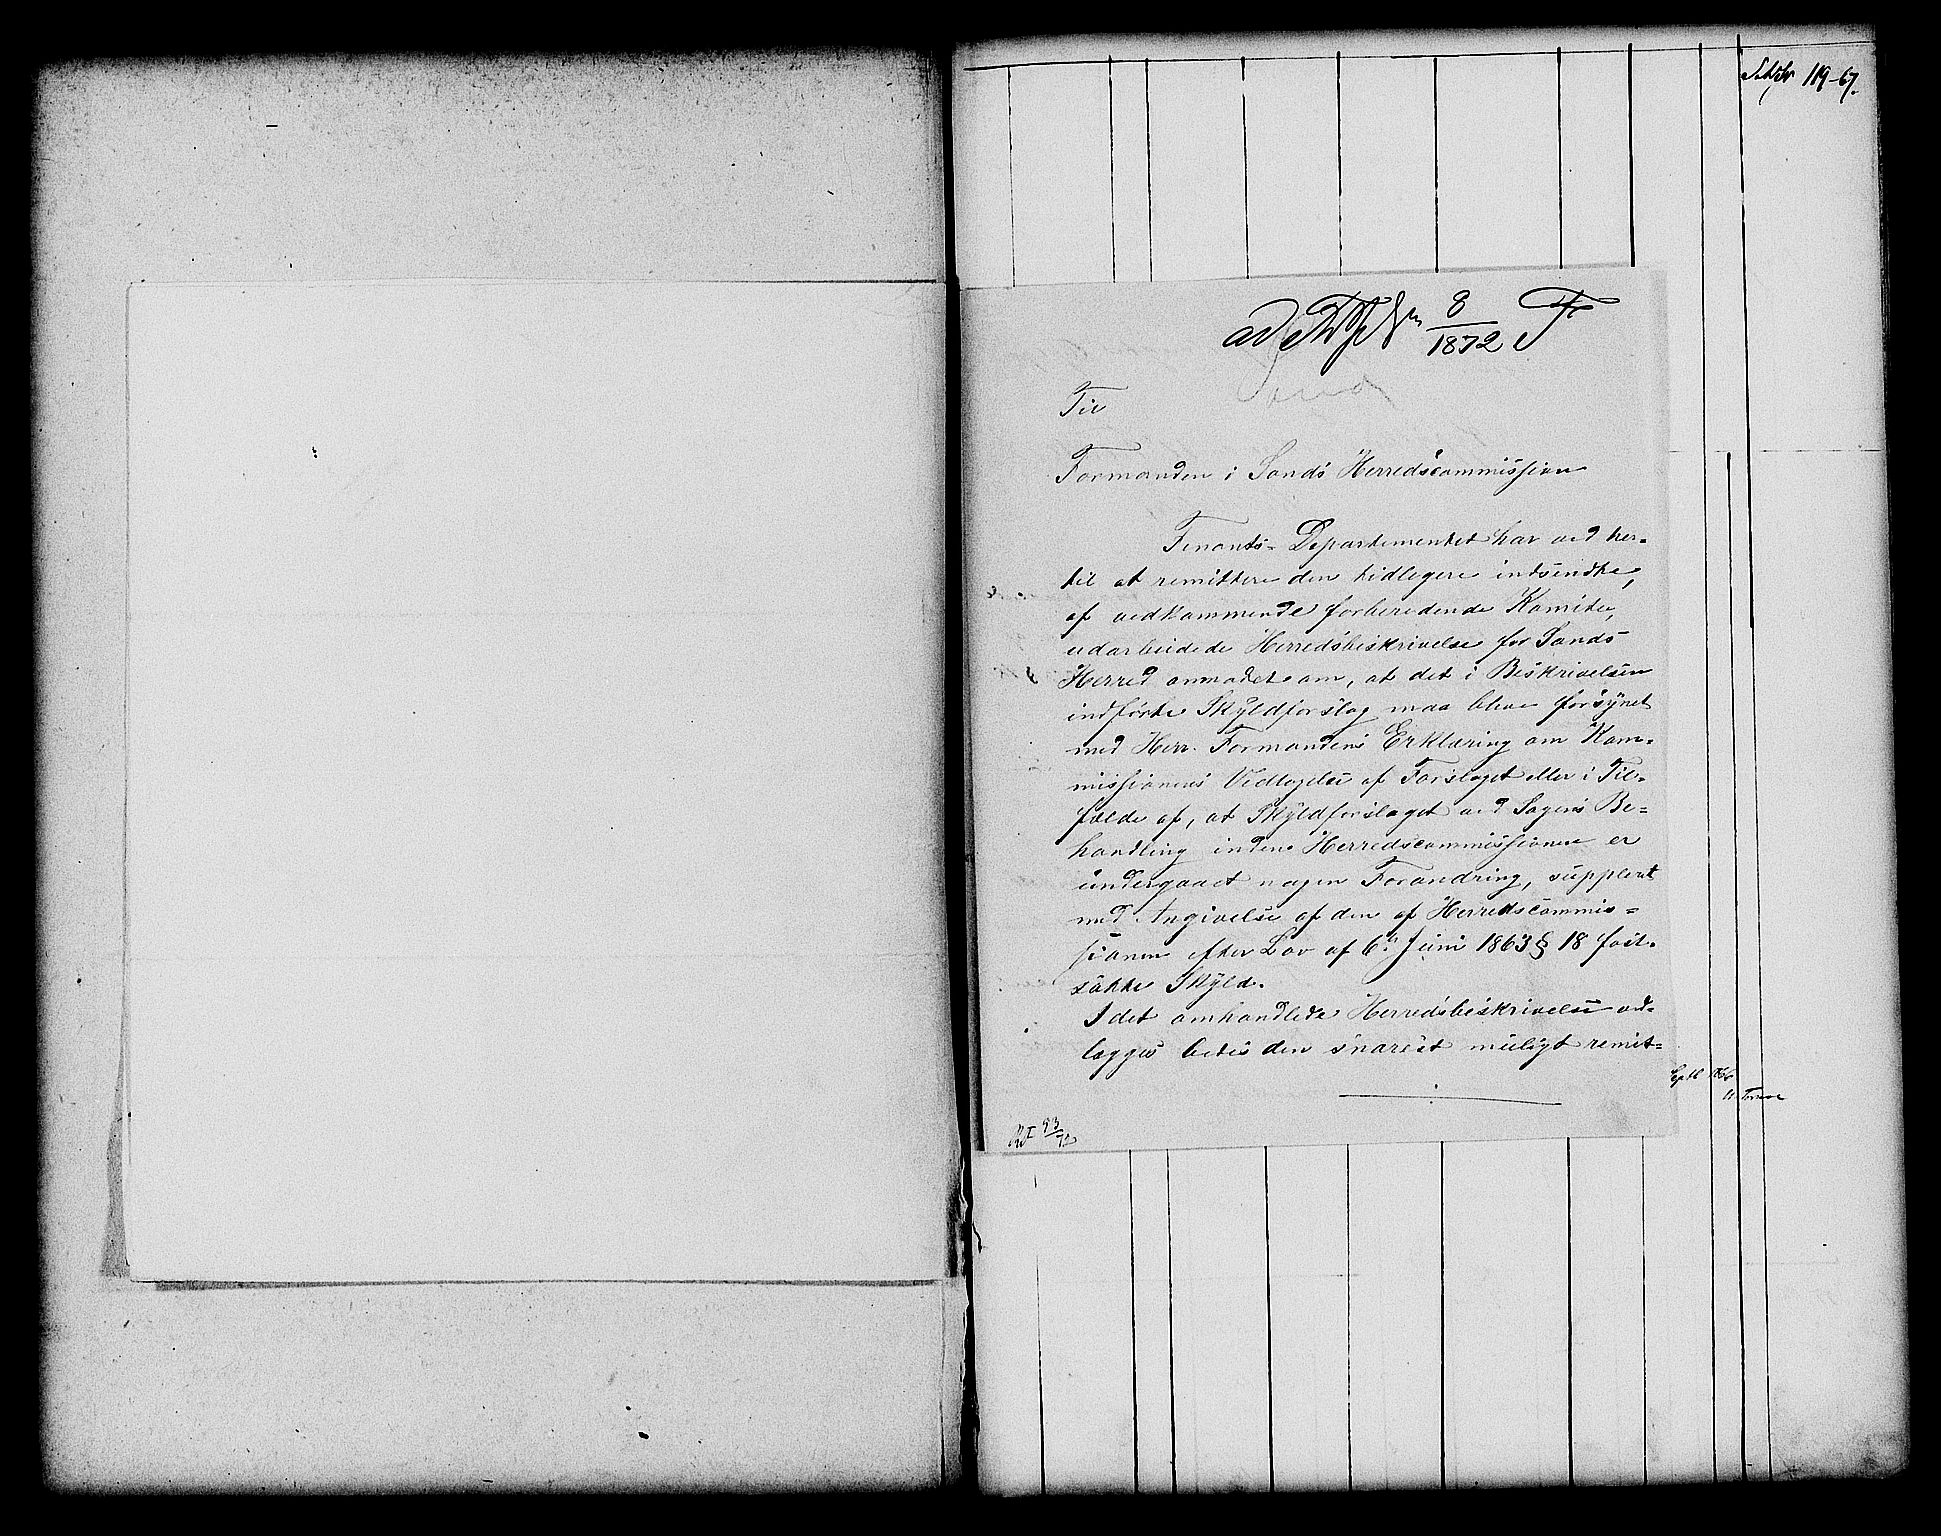 119-67.
ad
8
1872
F
Sand
Til
Formanden i Sands Herredscommission
Finants-Departementet har ved her-
til at remittere den tidligere indsendte,
af vedkommende forberedende Komitee,
udarbeidede Herredsbeskrivelse for Sands
Herred anmodet om, at det i Beskrivelsen
indførte Skyldforslag maa blive forsynet
med Herr Formandens Erklæring om Kom-
missionens Vedtagelse af Forslaget eller i Til-
fælde af, at Skyldforslaget ved Sagens Be-
handling inden Herredscommissionen er
undergaaet nogen Forandring, suppleret
med Angivelse af den af Herredscommis-
sionen efter Lov af 6te Juni 1863 § 18 fast-
satte Skyld.
I det omhandlede Herredsbeskrivelse ved-
lægges bedes den snarest muligt remit-
Septb 1866